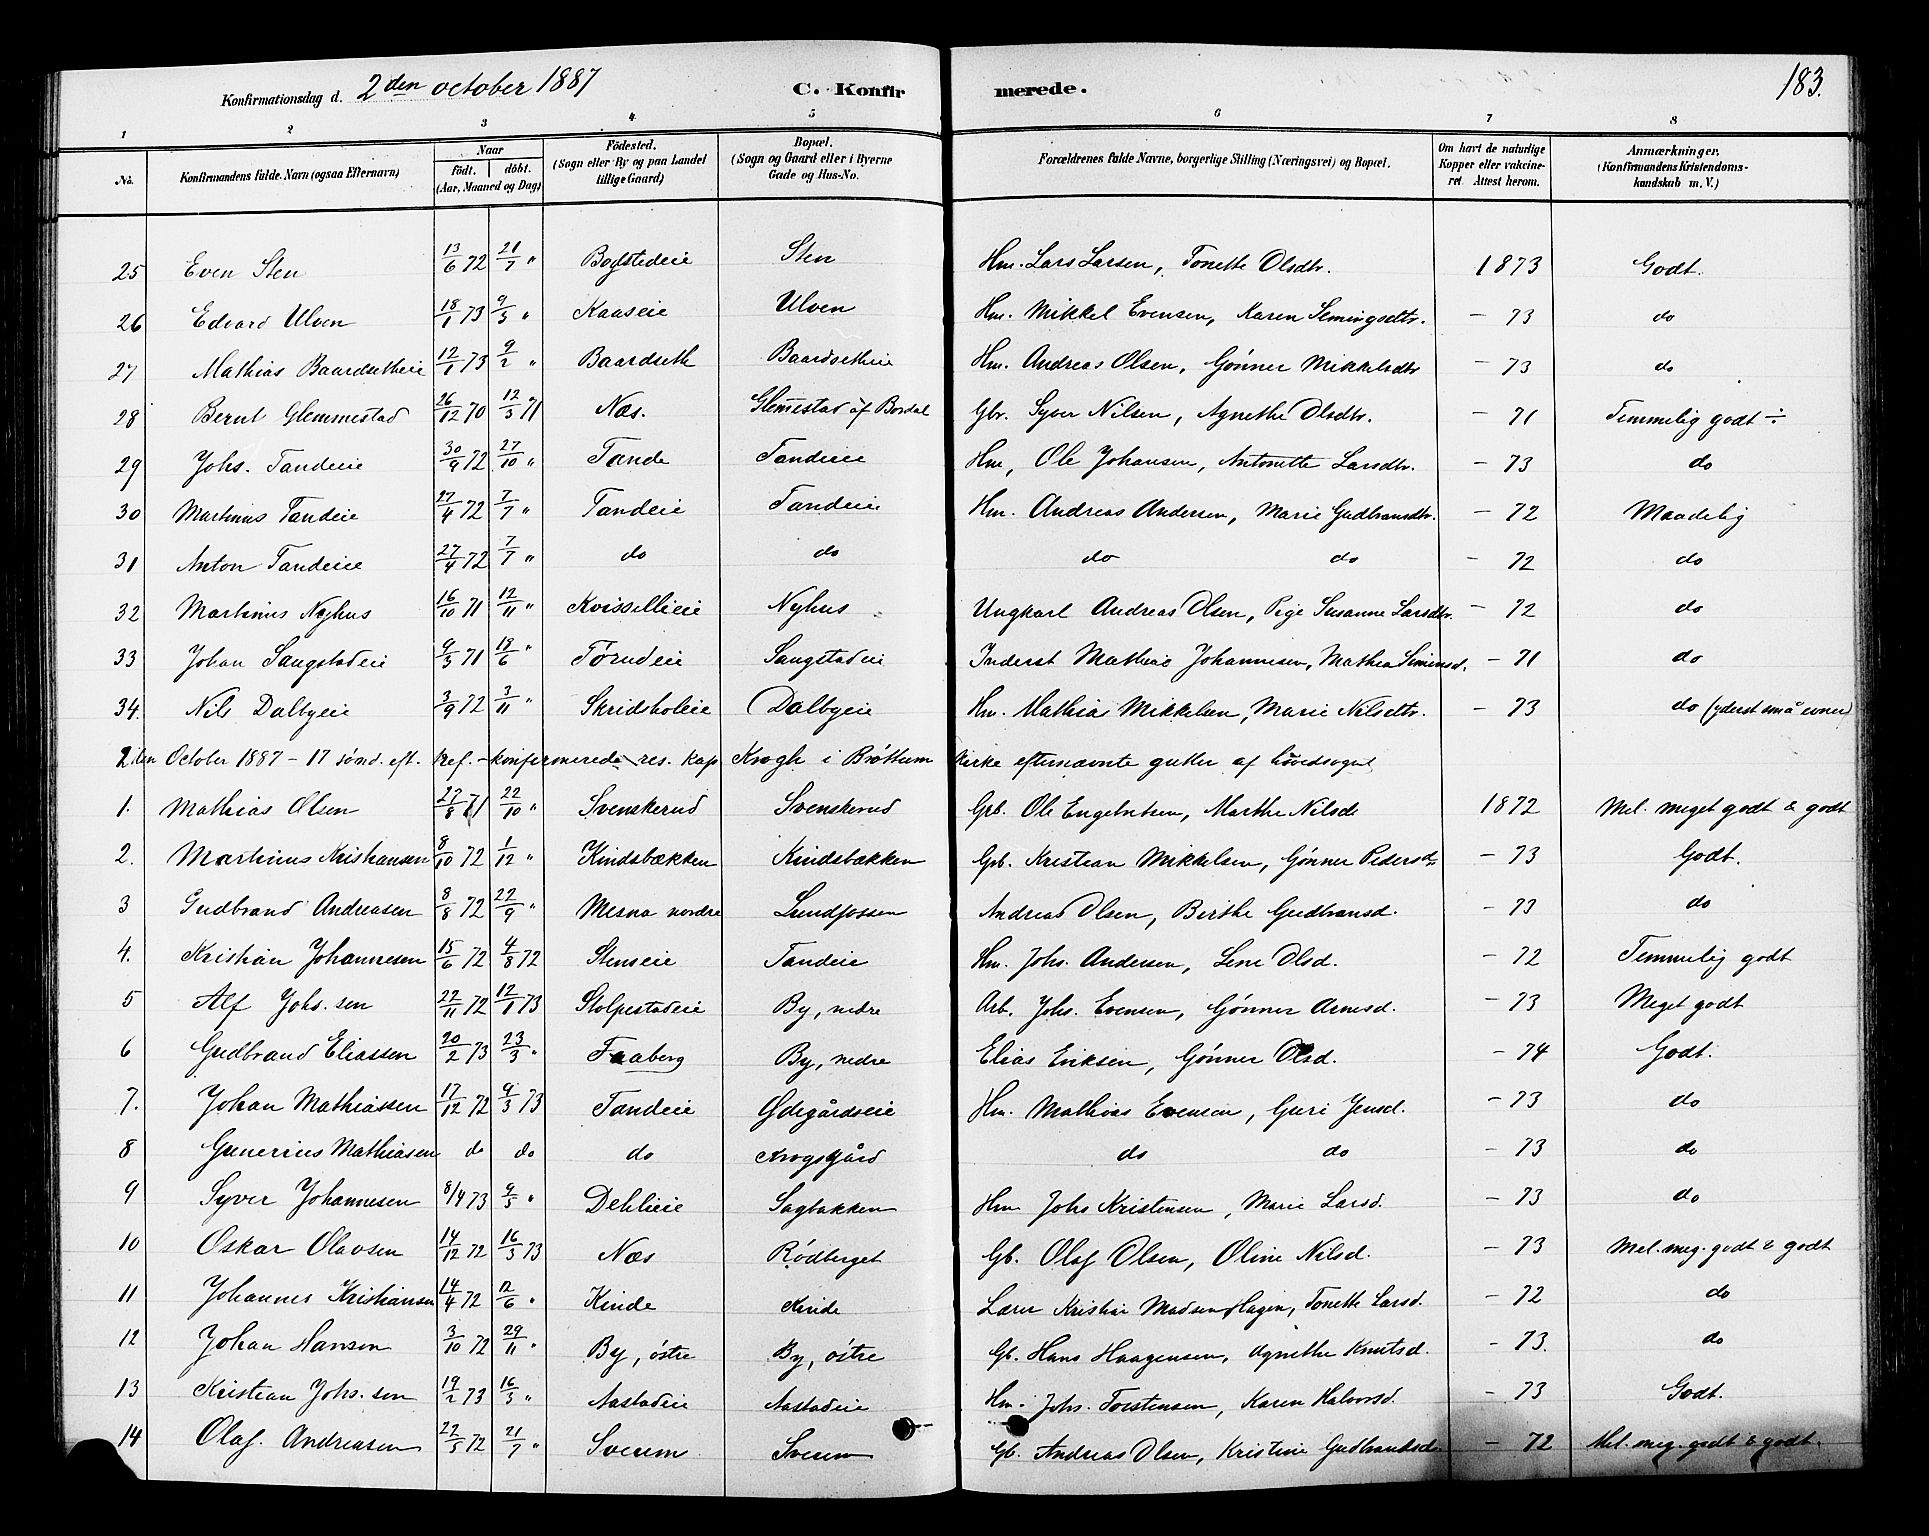 Konfirmationsdag d. 2den october 1887 C. Konfirmerede. 183.
1 2 3 4 5 6 7 8
No. Konfirmandens fulde Navn (ogsaa Efternavn) Naar födt. döbt. (Aar, Maaned og Dag) Födested. (Sogn eller By og paa Landet tillige Gaard) Bopæl. (Sogn og Gaard eller i Byerne Gade og Hus-No. Forældrenes fulde Navne, borgerlige Stilling (Næringsvei) og Bopæl. Om havt de naturlige Kopper eller vakcineret. Attest herom. Anmærkninger. (Konfirmandens Kristendomskundskab m. V.)
25 Even Sten 13/6 72 21/7 " Bogstedeie Sten Hm. Lars Larsen, Tonette Olsdtr. 1873 Godt.
26 Edvard Ulven 18/1 73 9/3 " Kaaseie Ulven Hm. Mikkel Evensen, Karen Semingsdtr. - 73 do
27 Mathias Baardsetheie 12/1 73 9/2 " Baardseth Baardsetheie Hm. Andreas Olsen, Gønner Mikkelsdtr - 73 do
28 Bernt Glemmestad 26/12 70 12/3 71 Næs. Glem̄estad af Bordal Gbr. Syver Nilsen, Agnethe Olsdtr. - 71 Temmelig godt ÷
29 Johs. Tandeie 30/9 72 27/10 " Tande Tandeie Hm, Ole Johansen, Antonette Larsdtr. - 73 do
30 Martinus Tandeie 27/4 72 7/7 " Tandeie Tandeie Hm. Andreas Andersen, Marie Gudbransdtr. - 72 Maadelig
31 Anton Tandeie 27/4 72 7/7 " do do do do - 72 do
32 Martinus Nyhus 16/10 71 12/11 " Kvisellieie Nyhus Ungkarl Andreas Olsen, Pige Susanne Larsdtr. - 72 do
33 Johan Saugstadeie 9/3 71 18/6 " Tørudeie Saugstadeie Inderst Mathias Johannesen, Mathea Simensd. - 71 do
34. Nils Dalbyeie 3/9 72 3/11 " Skridsholeie Dalbyeie Hm. Mathias Mikkelsen, Marie Nilsdtr. - 73 do (yderst små evner)
2den October 1887 - 17 sønd. eft. tref. - konfirmerede res. kap Krogh i Brøttum Kirke efternævnte gutter af hovedsognet
1. Mathias Olsen 27/8 71 22/10 " Svenskerud Svenskerud Grb. Ole Engebretsen, Marthe Nilsd. 1872 Mel. meget godt & godt
2. Martinus Kristiansen 8/10 72 1/12 " Kindsbækken Kindsbækken Grb. Kristian Mikkelsen, Gønner Pedersd. - 73 Godt.
3 Gudbrand Andreasen 8/8 72 22/9 " Mesna nordre Lundfossen Andreas Olsen, Birthe Gudbransd. - 73 do
4. Kristian Johannesen 15/6 72 4/8 72 Stenseie Tandeie Hm. Johs. Andersen, Lene Olsd. - 72 Temmelig godt
5 Alf Johs.sen 22/11 72 12/1 73 Stolpestadeie By, nedre Arb. Johs. Evensen, Gønner Arnesd. - 73 Meget godt
6 Gudbrand Eliassen 20/2 73 23/3 " Faaberg By, nedre Elias Eriksen, Gønner Olsd. - 74 Godt.
7. Johan Mathiassen 17/12 72 9/3 73 Tandeie Ødegårdseie Hm. Mathias Evensen, Guri Jensd. - 73 do
8 Gunerius Mathiasen do do do Krogsgård do do - 73 do
9 Syver Johannesen 8/4 73 9/5 " Dehlieie Sagbakken Hm Johs Kristensen, Marie Larsd. - 73 do
10 Oskar Olavsen 14/12 72 16/3 73 Næs Rødberget Gb. Olaf Olsen, Oline Nilsd. - 73 Mel. meg. godt & godt
11 Johannes Kristiansen 14/4 72 12/6 " Kinde Kinde Lærer Kristian Madsen Hagen, Tonette Larsd. - 72 do
12 Johan Hansen 3/10 72 29/11 " By, østre By, østre Gb. Hans Haagensen, Agnethe Knutsd. - 73. do
13 Kristian Johs.sen 19/2 73 16/3 " Aastadeie Aastadeie Hm. Johs. Torstensen, Karen Halvorsd. - 73 Godt.
14 Olaf. Andreasen 22/5 72 21/7 " Sveum Sveum Gb. Andreas Olsen, Kristine Gudbrandsd. - 72 Mel. meg. godt & godt.